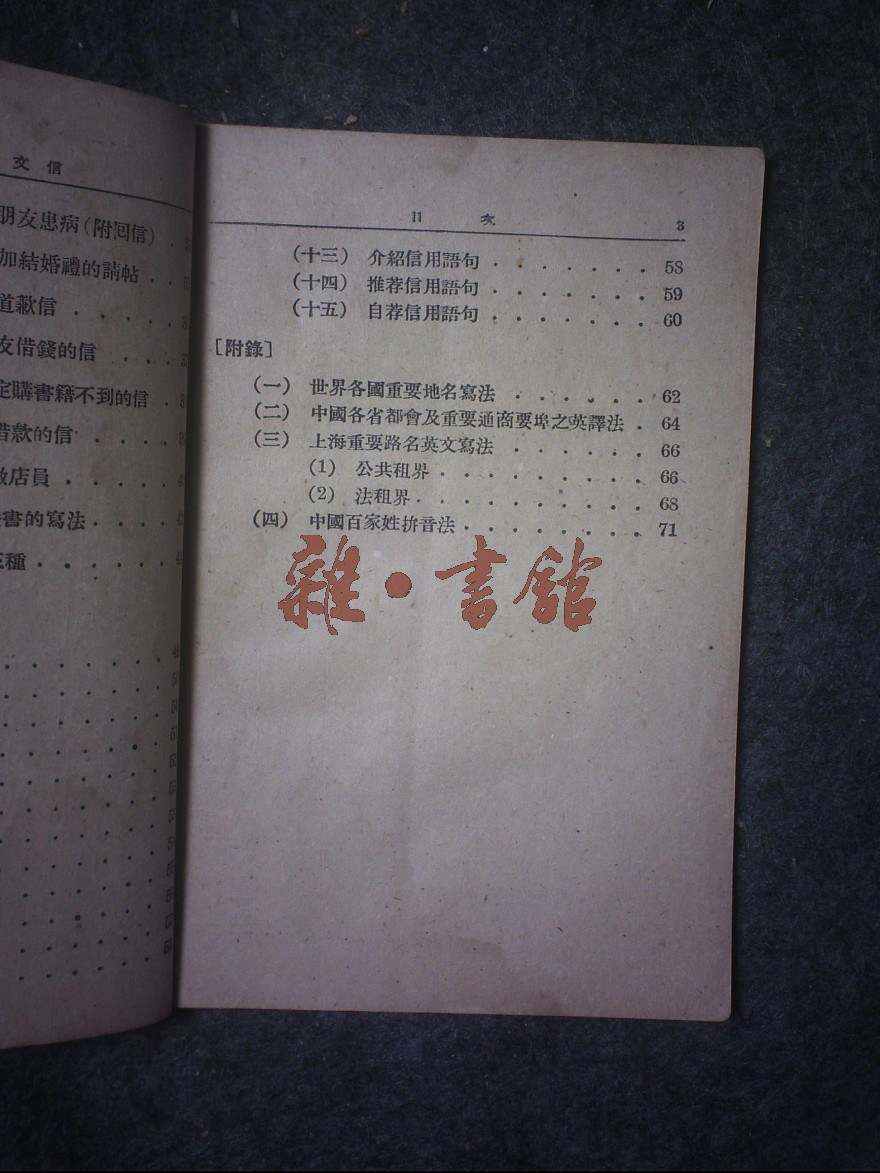 文信
朋友患病(附回信)
加結婚禮的請帖
道歉信
友借錢的信
定購書籍不到的信
借款的信
店員
書的寫法
種
目 次 3
(十三) 介紹信用語句 58
(十四) 推荐信用語句 59
(十五) 自荐信用語句 60
[附錄]
(一) 世界各國重要地名寫法 62
(二) 中國各省都會及重要通商要埠之英譯法 64
(三) 上海重要路名英文寫法 66
(1) 公共租界 66
(2) 法租界 68
(四) 中國百家姓拚音法 71
雜·書館